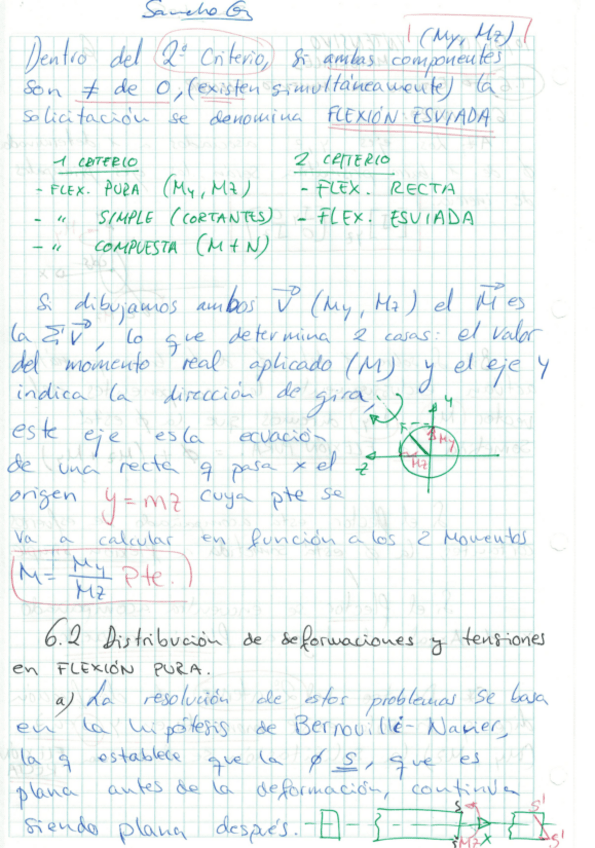 Sancho Gr
(My, Mz)
Dentro del 2º Criterio, si ambas componentes
son ≠ de 0, (existen simultáneamente) la
solicitación se denomina FLEXIÓN ESVIADA
1 CRITERIO
2 CRITERIO
- FLEX. PURA (My, Mz)
- FLEX. RECTA
- " SIMPLE (CORTANTES)
- FLEX. ESVIADA
- " COMPUESTA (M+N)
Si dibujamos ambos V (My, Mz) el M es
la ΣV, lo que determina 2 cosas: el valor
del momento real aplicado (M) y el eje y
indica la dirección de giro,
este eje es la ecuación
de una recta q pasa x el
origen y=mz cuya pte se
va a calcular en función a los 2 Momentos
M= My/Mz Pte.
Y
F
My
Z
Mz
6.2 Distribución de deformaciones y tensiones
en FLEXIÓN PURA.
a) La resolución de estos problemas se basa
en la hipótesis de Bernouilli-Navier,
la q establece que la ∅ S, que es
plana antes de la deformación, continua
siendo plana después.
S
S
Mz
X
S'
S'